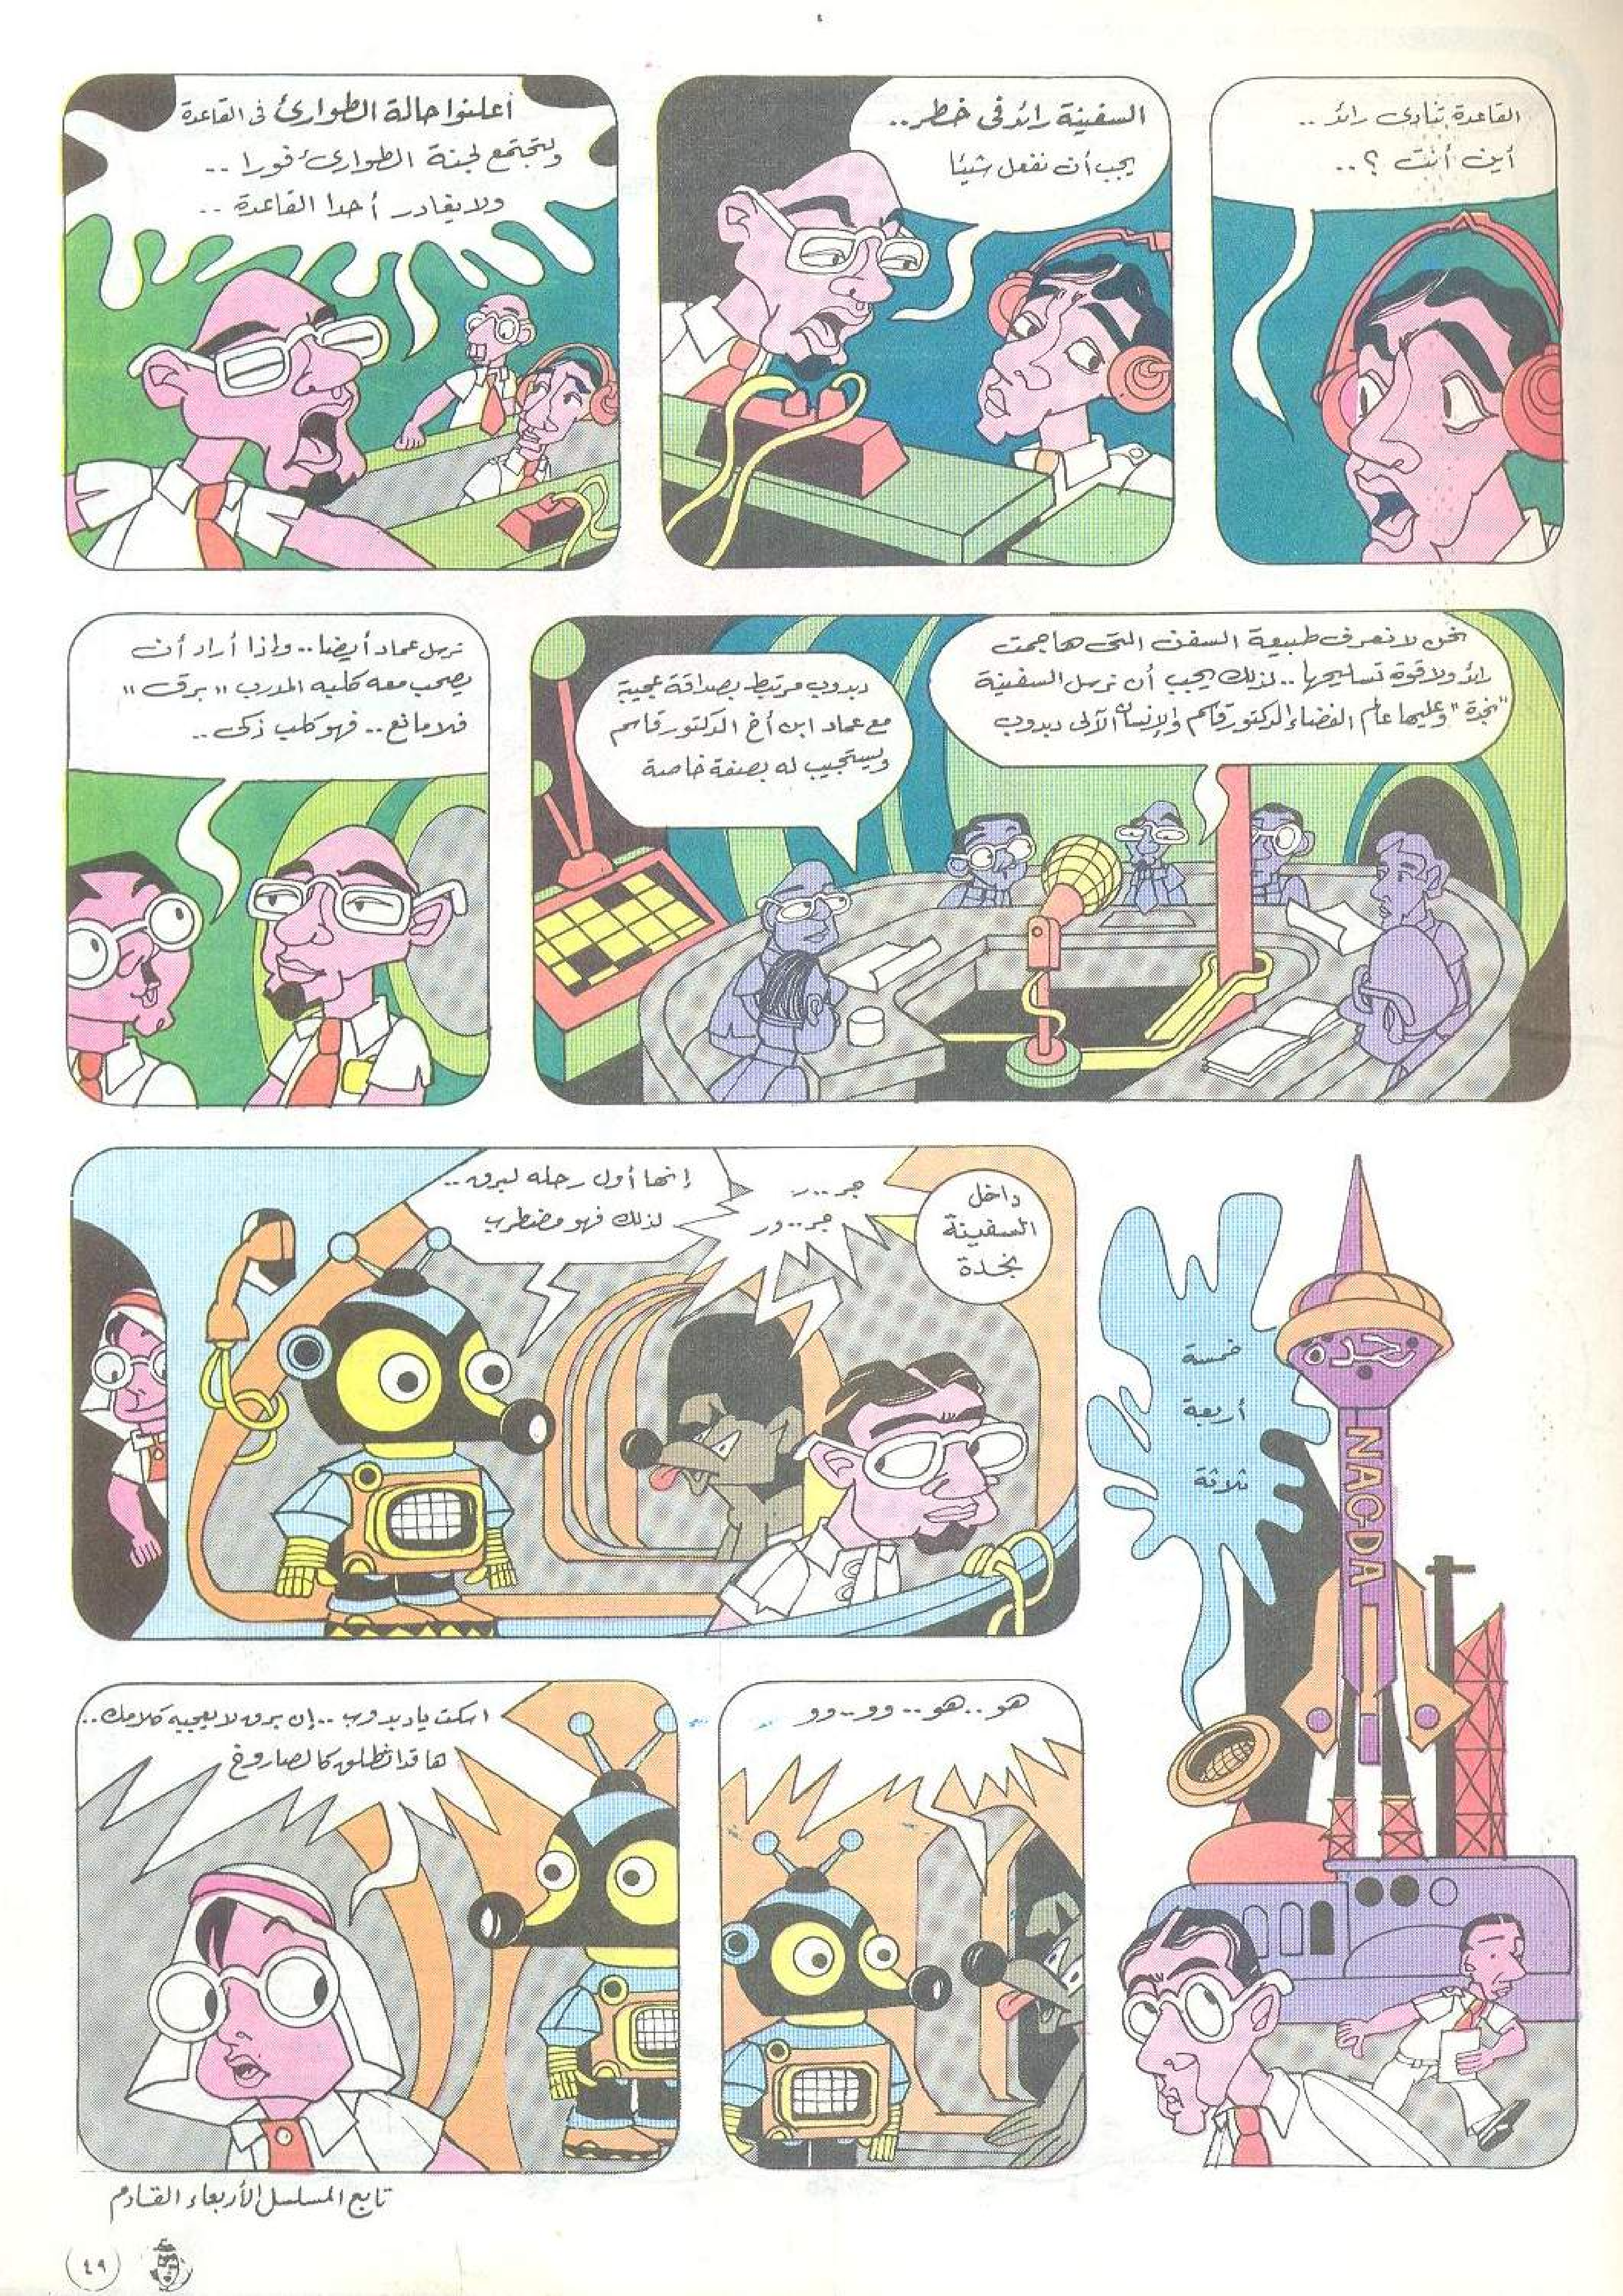 القاعدة تنادى رائد ..
أين أنت ؟ ..
السفينة رائد فى خطر ..
يجب أن نفعل شيئا
أعلنوا حالة الطوارئ فى القاعدة
ولتجتمع لجنة الطوارئ فورا ..
ولا يغادر أحدا القاعدة ..
نحن لا نعرف طبيعة السفن التى هاجمت
رائد ولا قوة تسليحها .. لذلك يجب أن نرسل السفينة
"نجدة" وعليها عالم الفضاء الدكتور قاسم والإنسان الآلى دبدوب
دبدوب مرتبط بصداقة عجيبة
مع عماد ابن أخ الدكتور قاسم
ويستجيب له بصفة خاصة
نرسل عماد أيضا .. وإذا أراد أن
يصحب معه كلبه المدرب "برق"
فلا مانع .. فهو كلب ذكى ..
خمسة
أربعة
ثلاثة
نجدة
NAGDA
داخل
السفينة
نجدة
جر .. ر
جر .. ور
إنها أول رحله لبرق ..
لذلك فهو مضطرب
هو .. هو .. وو .. وو
اسكت يا دبدوب .. إن برق لا يعجبه كلامك ..
ها قد انطلق كالصاروخ
تابع المسلسل الأربعاء القادم
٤٩